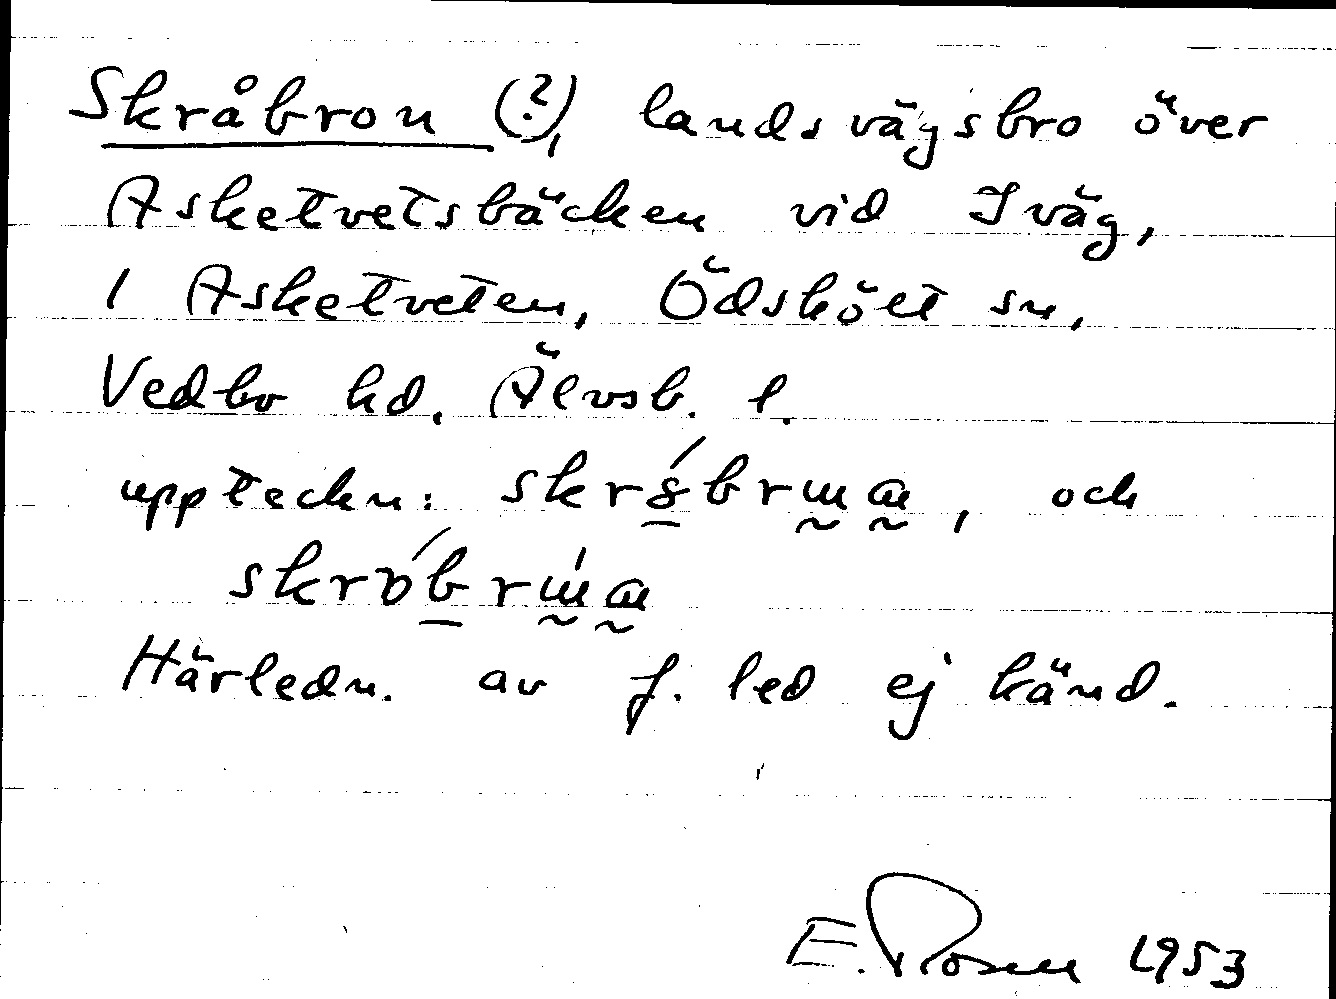 Skråbron (?), landsvägsbro över
Asketvetsbäcken vid Iväg,
1 Asketveten, Ödskölt sn,
Vedbo hd. Älvsb. l.
uppteckn: och
Härledn. av f. led ej känd.
E. Rosen 1953